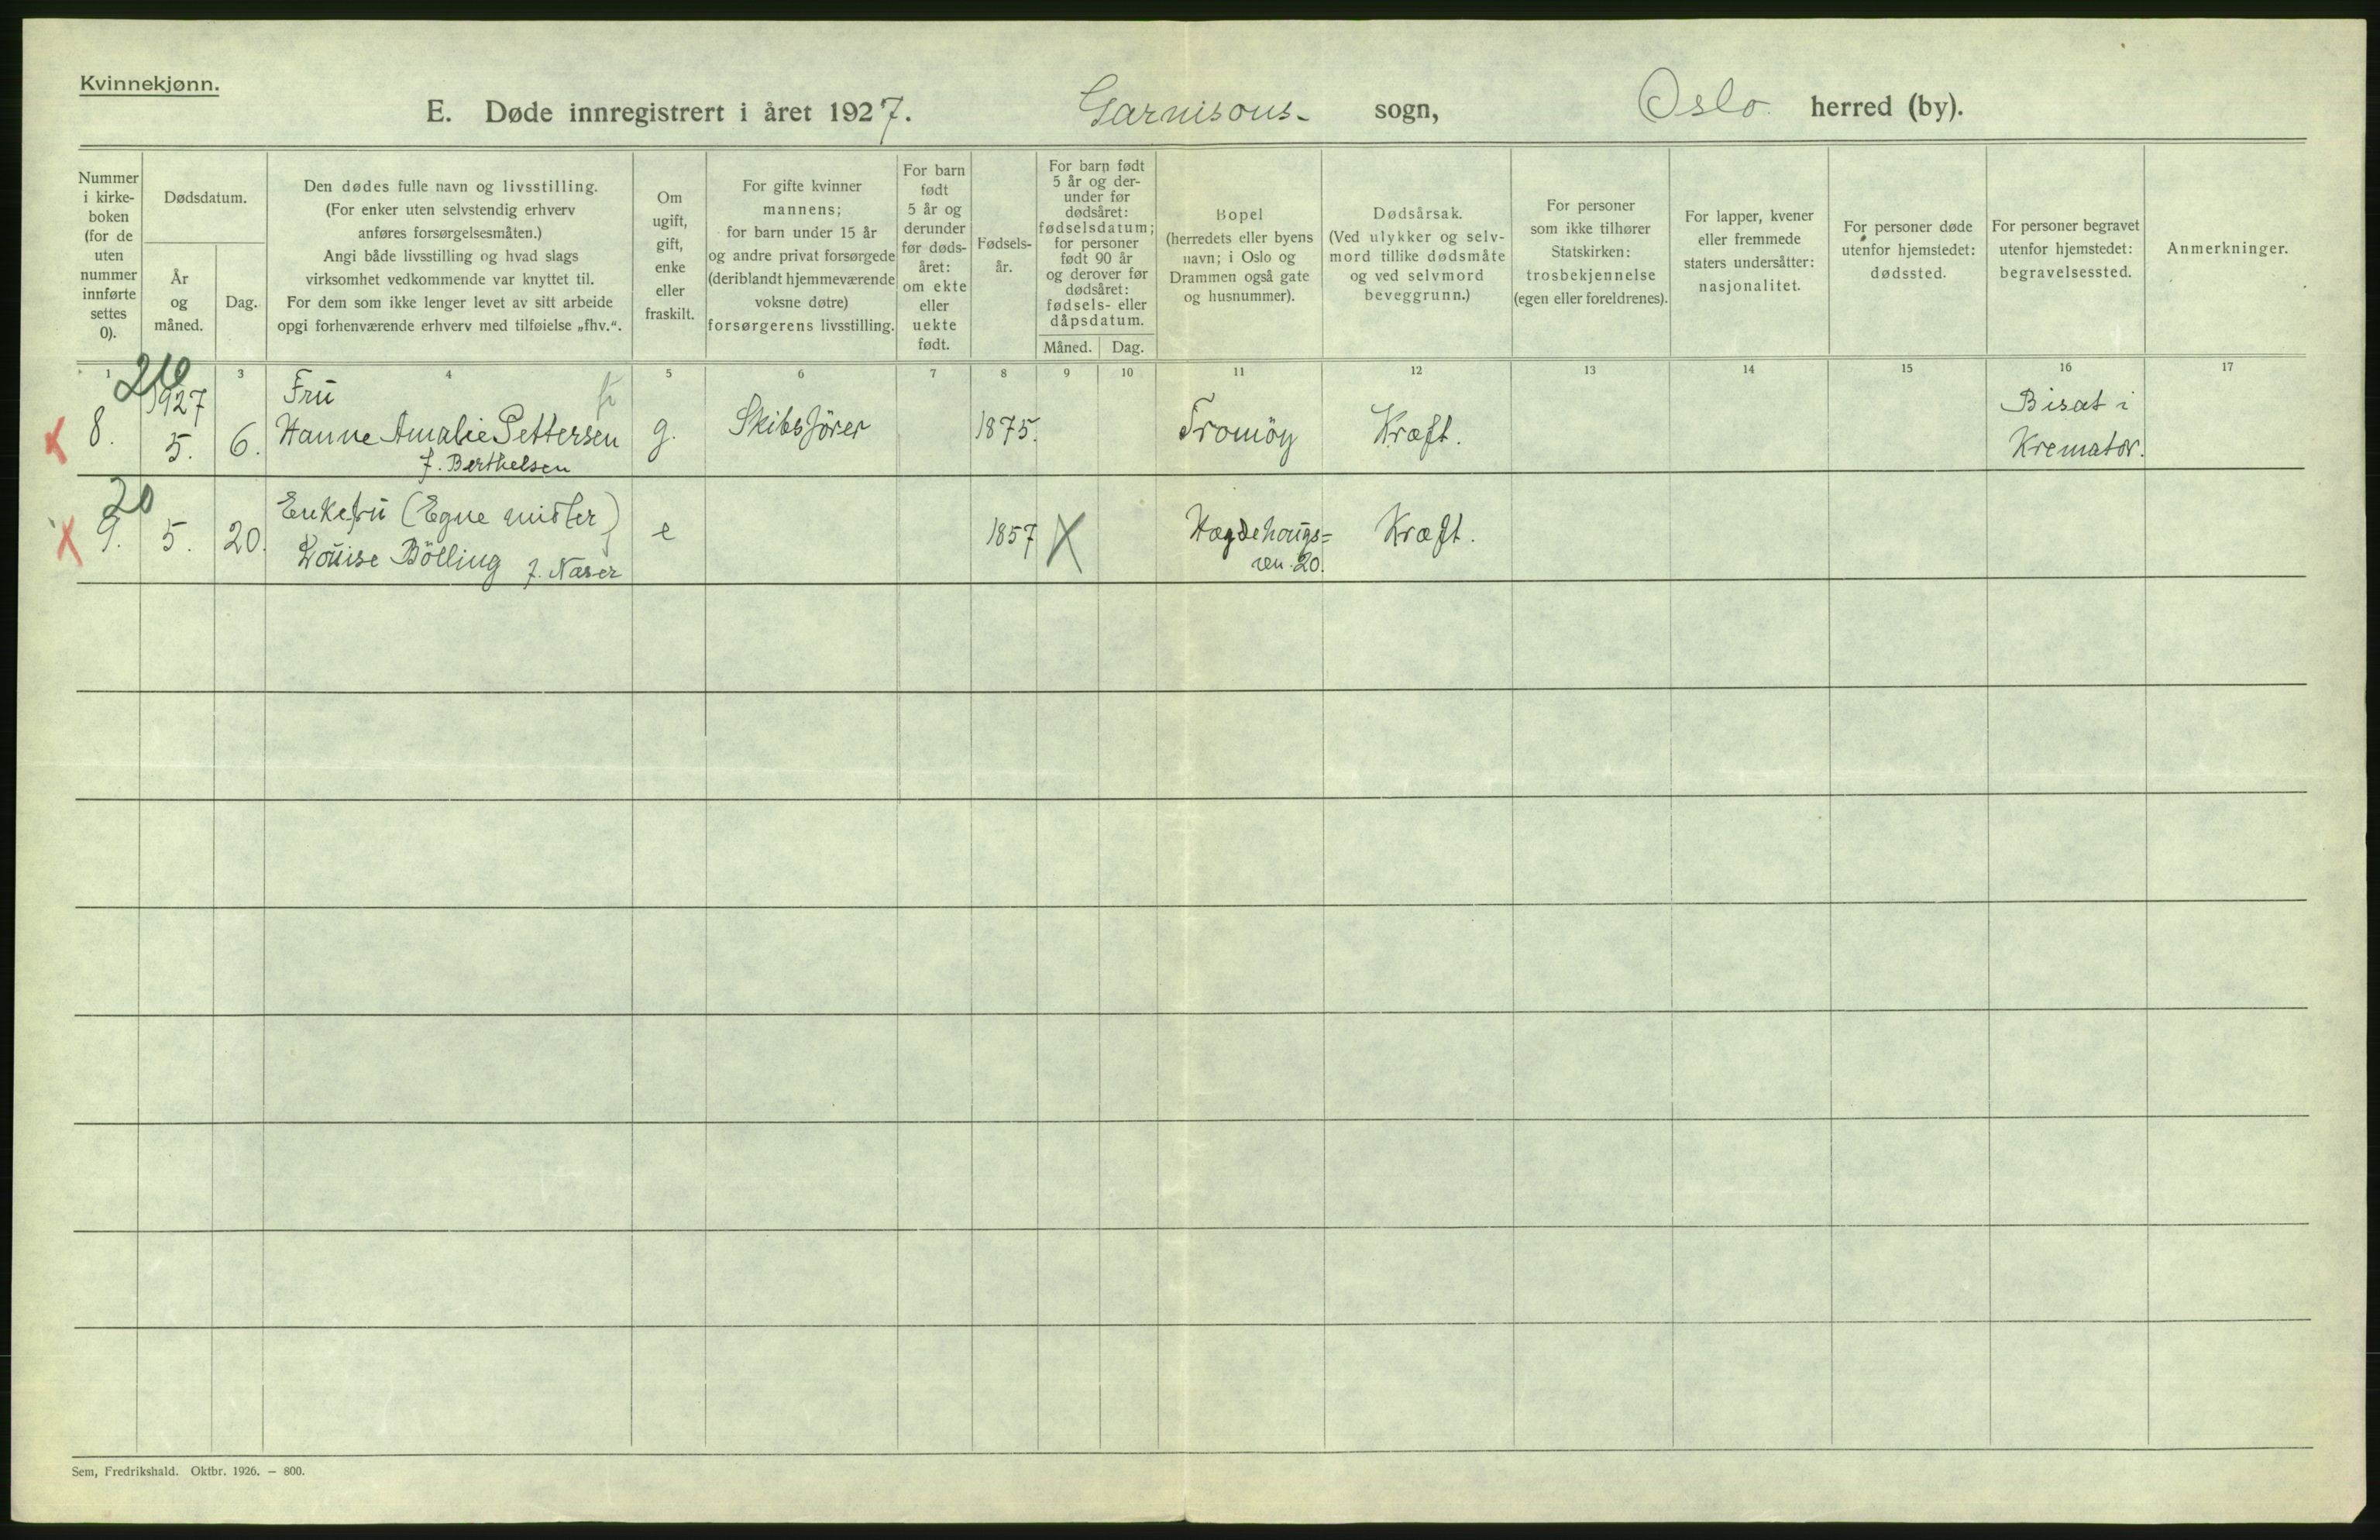 Kvinnekjønn.
E. Døde innregistrert i året 1927. Garnisons- sogn, Oslo herred (by).
Nummer
i kirke-
boken
(for de
uten
nummer
innførte
settes
0).
Dødsdatum.
År
og
måned.
Dag.
Den dødes fulle navn og livsstilling.
(For enker uten selvstendig erhverv
anføres forsørgelsesmåten.)
Angi både livsstilling og hvad slags
virksomhet vedkommende var knyttet til.
For dem som ikke lenger levet av sitt arbeide
opgi forhenværende erhverv med tilføielse „fhv.“.
Om
ugift,
gift,
enke
eller
fraskilt.
For gifte kvinner
mannens;
for barn under 15 år
og andre privat forsørgede
(deriblandt hjemmeværende
voksne døtre)
forsørgerens livsstilling.
For barn
født
5 år og
derunder
før døds-
året:
om ekte
eller
uekte
født.
Fødsels-
år.
For barn født
5 år og der-
under før
dødsåret:
fødselsdatum;
for personer
født 90 år
og derover før
dødsåret:
fødsels- eller
dåpsdatum.
Måned. Dag.
Bopel
(herredets eller byens
navn; i Oslo og
Drammen også gate
og husnummer).
Dødsårsak.
(Ved ulykker og selv-
mord tillike dødsmåte
og ved selvmord
beveggrunn.)
For personer
som ikke tilhører
Statskirken:
trosbekjennelse
(egen eller foreldrenes).
For lapper, kvener
eller fremmede
staters undersåtter:
nasjonalitet.
For personer døde
utenfor hjemstedet:
dødssted.
For personer begravet
utenfor hjemstedet:
begravelsessted.
Anmerkninger.
1 3 4 5 6 7 8 9 10 11 12 13 14 15 16 17
8.
1927
5.
6.
Fru
Hanne Amalie Pettersen
f. Berthelsen
g.
Skibsfører
1875.
Tromöy
Kræft.
Bisat i
Kremator.
20
9.
5.
20.
Enkefru (Egne midler)
Louise Bölling f. Næser
e
1857
X
Hægdehaugs=
vn. 20.
Kræft.
Sem, Fredrikshald. Oktbr. 1926. — 800.